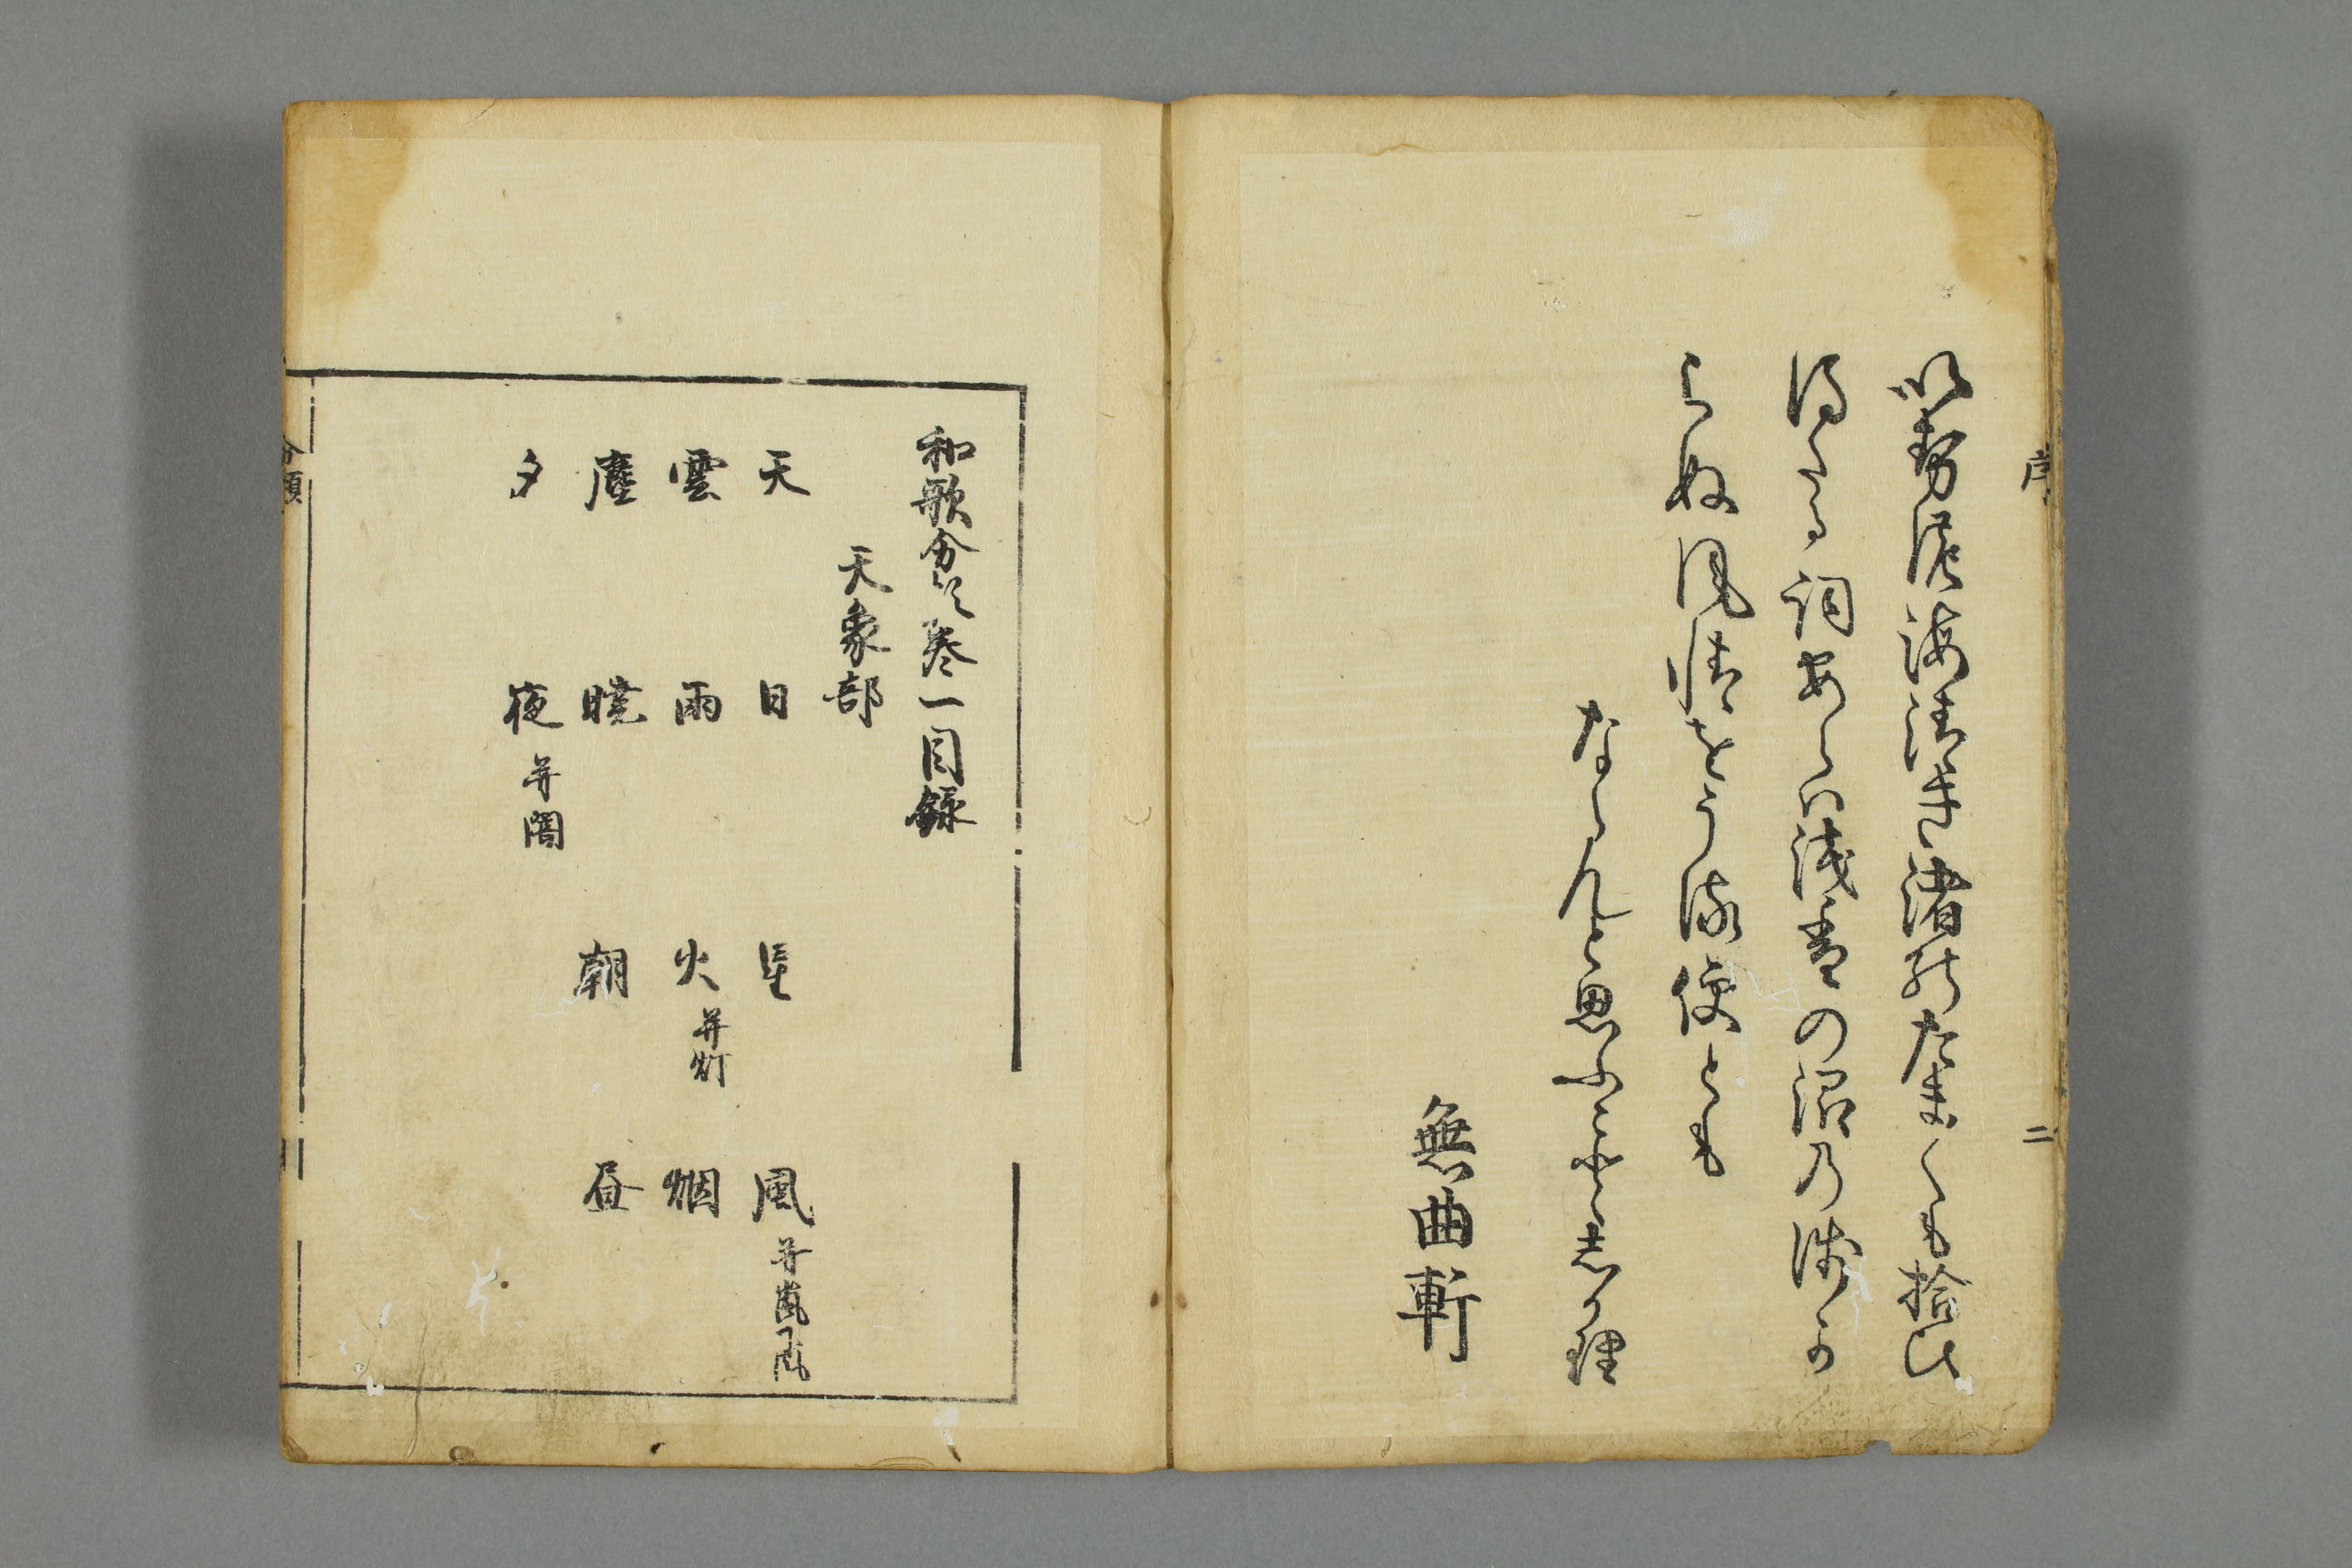 序　二
以勢濃海清き渚能たまくも拾ひ
得たる詞あらハ浅香の沼乃浅か
らぬ風情をうる便とも
ならんと思ふこと志か理
無曲軒
和歌分類巻一目録
天象部
天　日　星　風并嵐凩
雲　雨　火并灯　烟
塵　暁　朝　昼
夕　夜并闇
分類